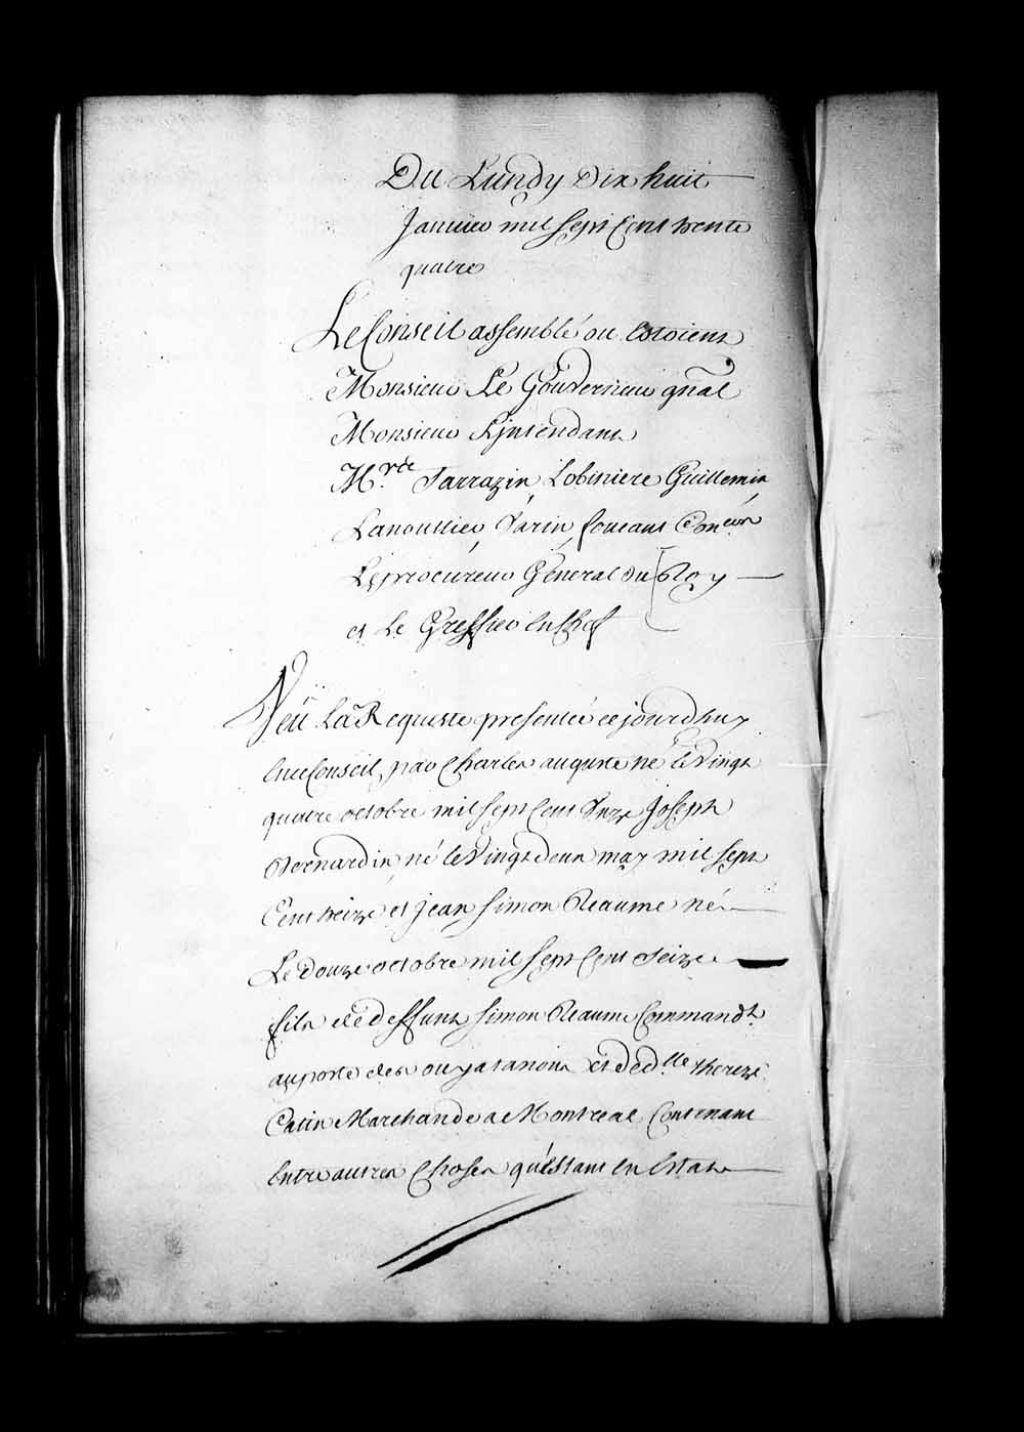 Du Lundy Dix huit
Janvier mil sept Cent trente
quatre
Le Conseil assemblé ou Estoient
Monsieur Le Gouverneur gnal
Monsieur L'jntendant
Mrs Sarrazin, Lobiniere, Guillemin
Lanoullier, Varin, foucaut Coners
Le procureur Géneral du Roy
et Le Greffier En Chef
Veu La Requeste presentée ce jourdhuy
En ce Conseil, par Charles auguste né le Vingt
quatre octobre mil sept Cent Unze Joseph
Bernardin, né le Vingt deux may mil sept
Cent treize et jean Simon Reaume né
Le douze octobre mil sept Cent Seize
fils de deffunt Simon Reaume Commandt
au poste des ouyatanons et de dlle therese
Catin Marchande a Montreal Contenant
Entre autres Choses qu'Estant En Estat